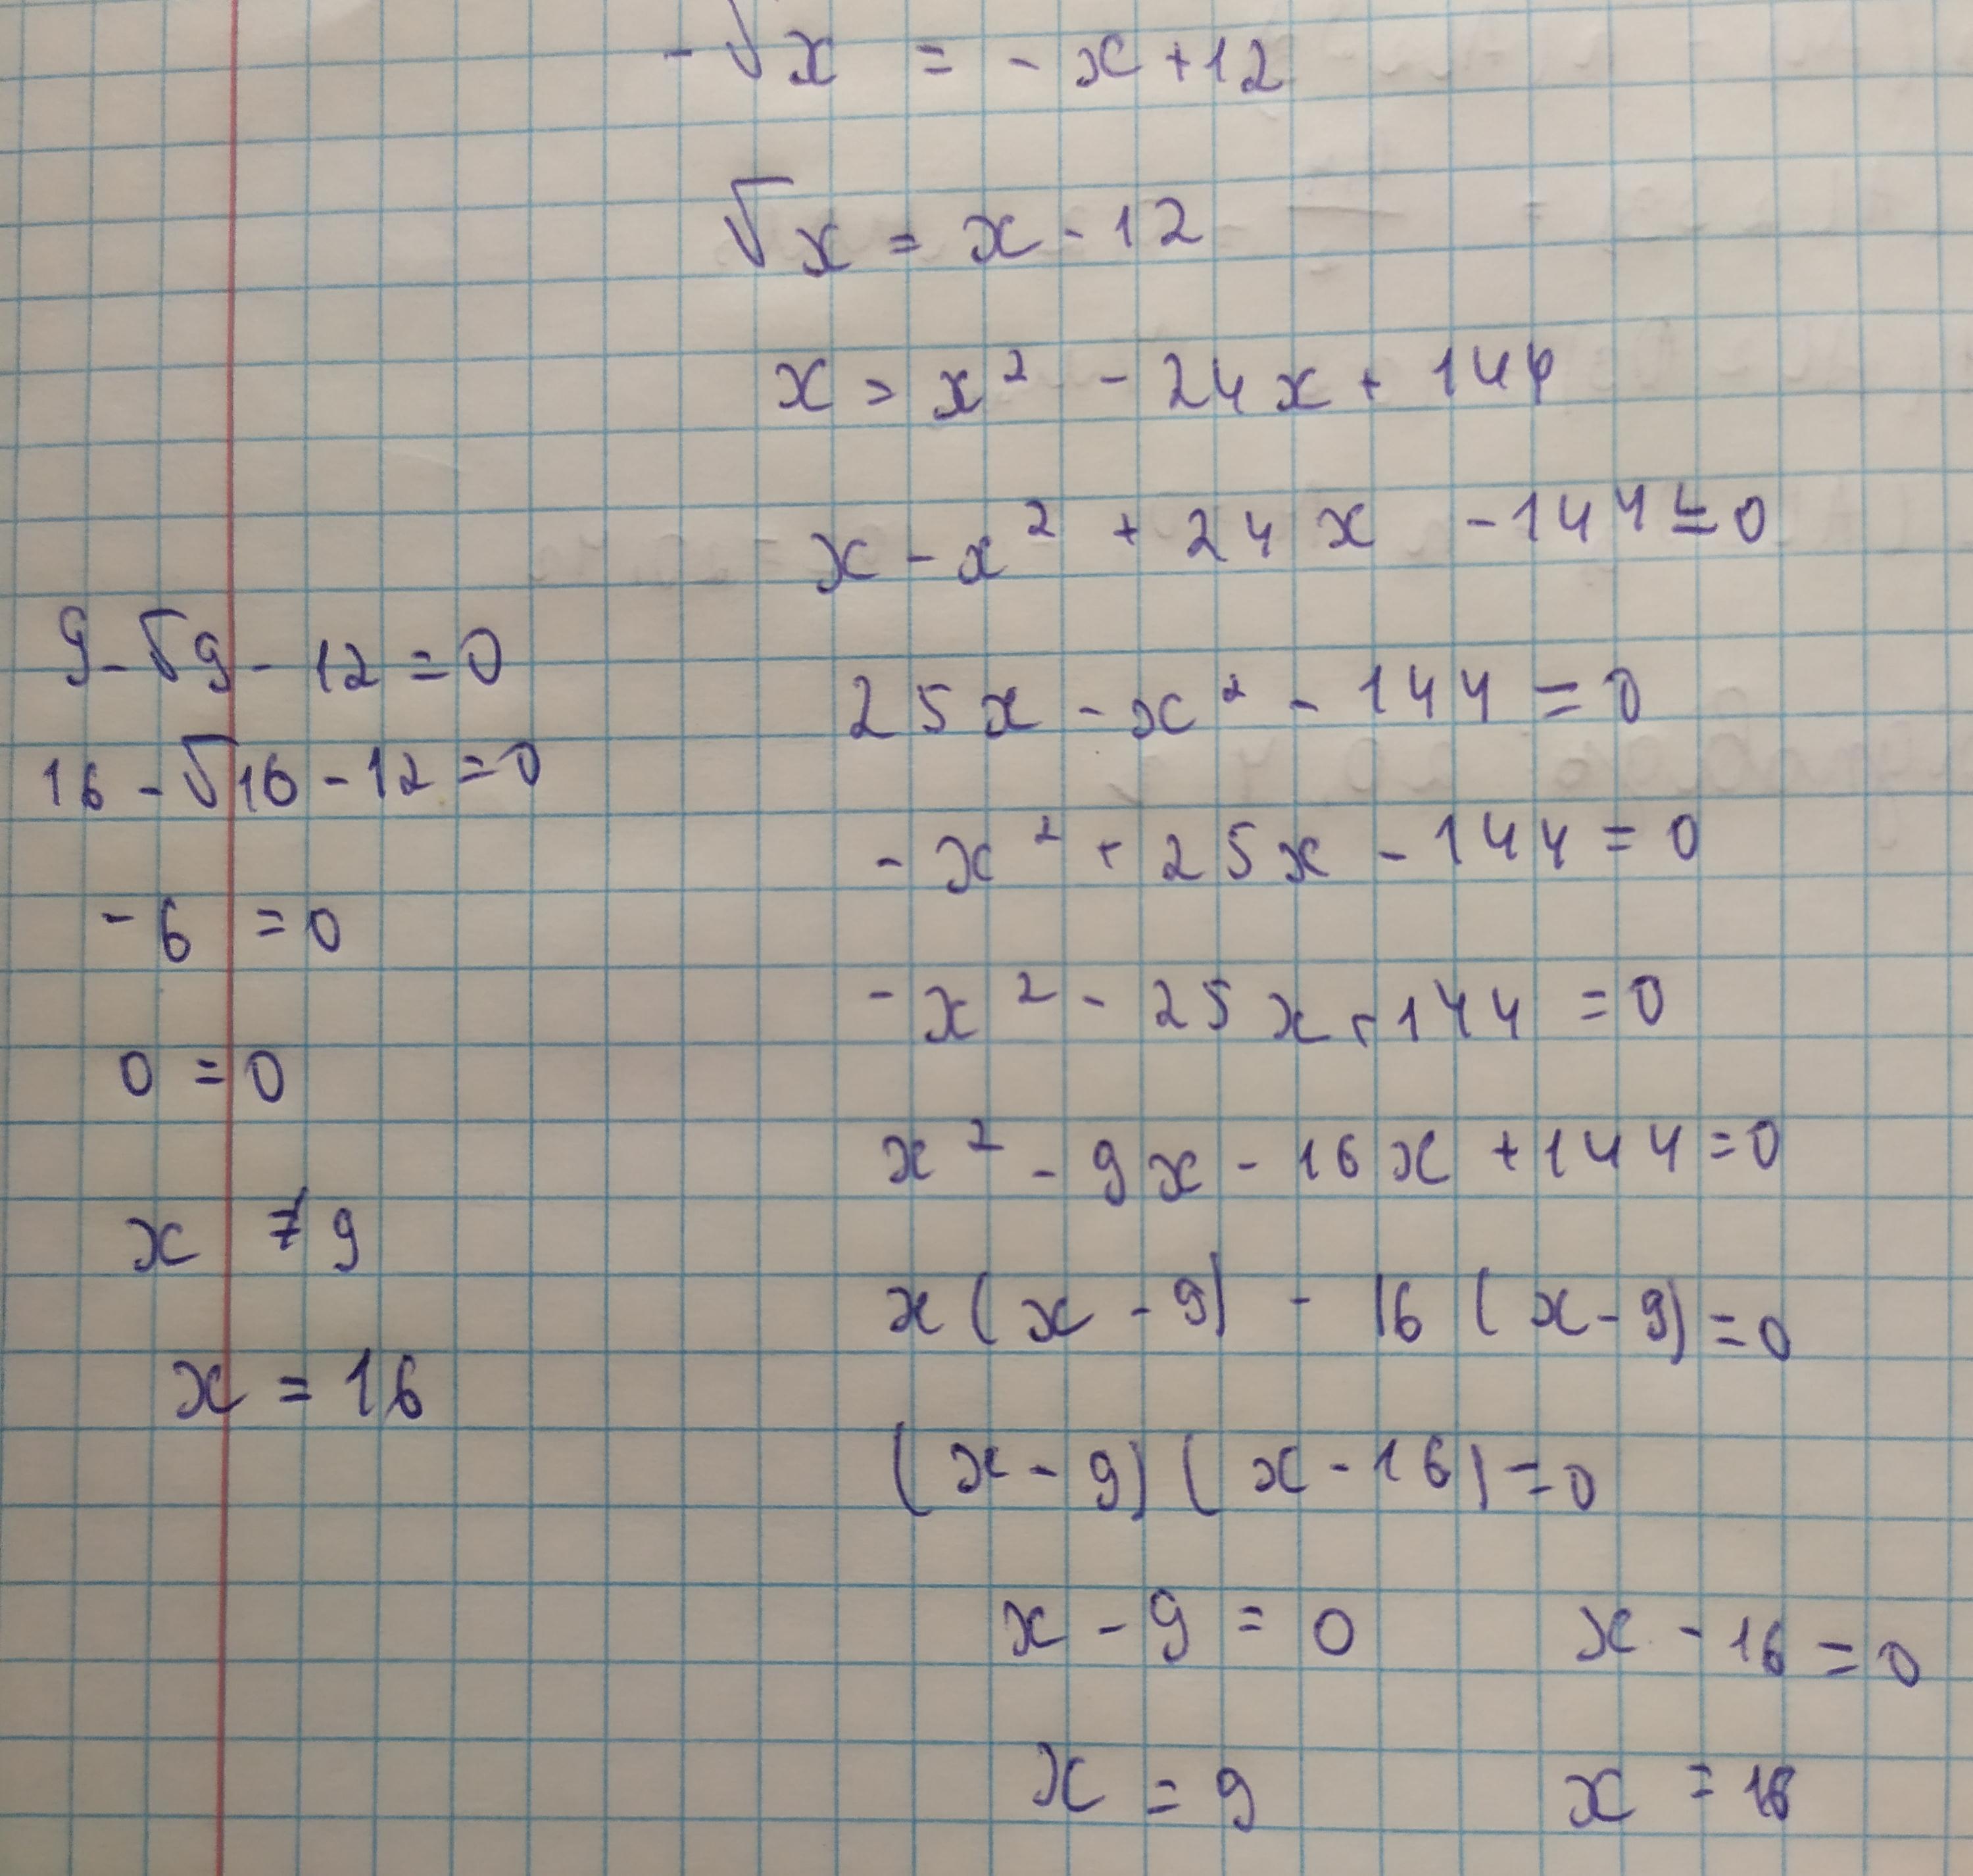 -√x = -x+12
√x = x-12
x = x² - 24x + 144
x - x² + 24x - 144 = 0
25x - x² - 144 = 0
-x² + 25x - 144 = 0
-x² - 25x + 144 = 0
x² - 9x - 16x + 144 = 0
x(x-9) - 16(x-9) = 0
(x-9)(x-16) = 0
x-9 = 0 x-16 = 0
x = 9 x = 16
9-√9 - 12 = 0
16 - √16 - 12 = 0
-6 = 0
0 = 0
x ≠ 9
x = 16